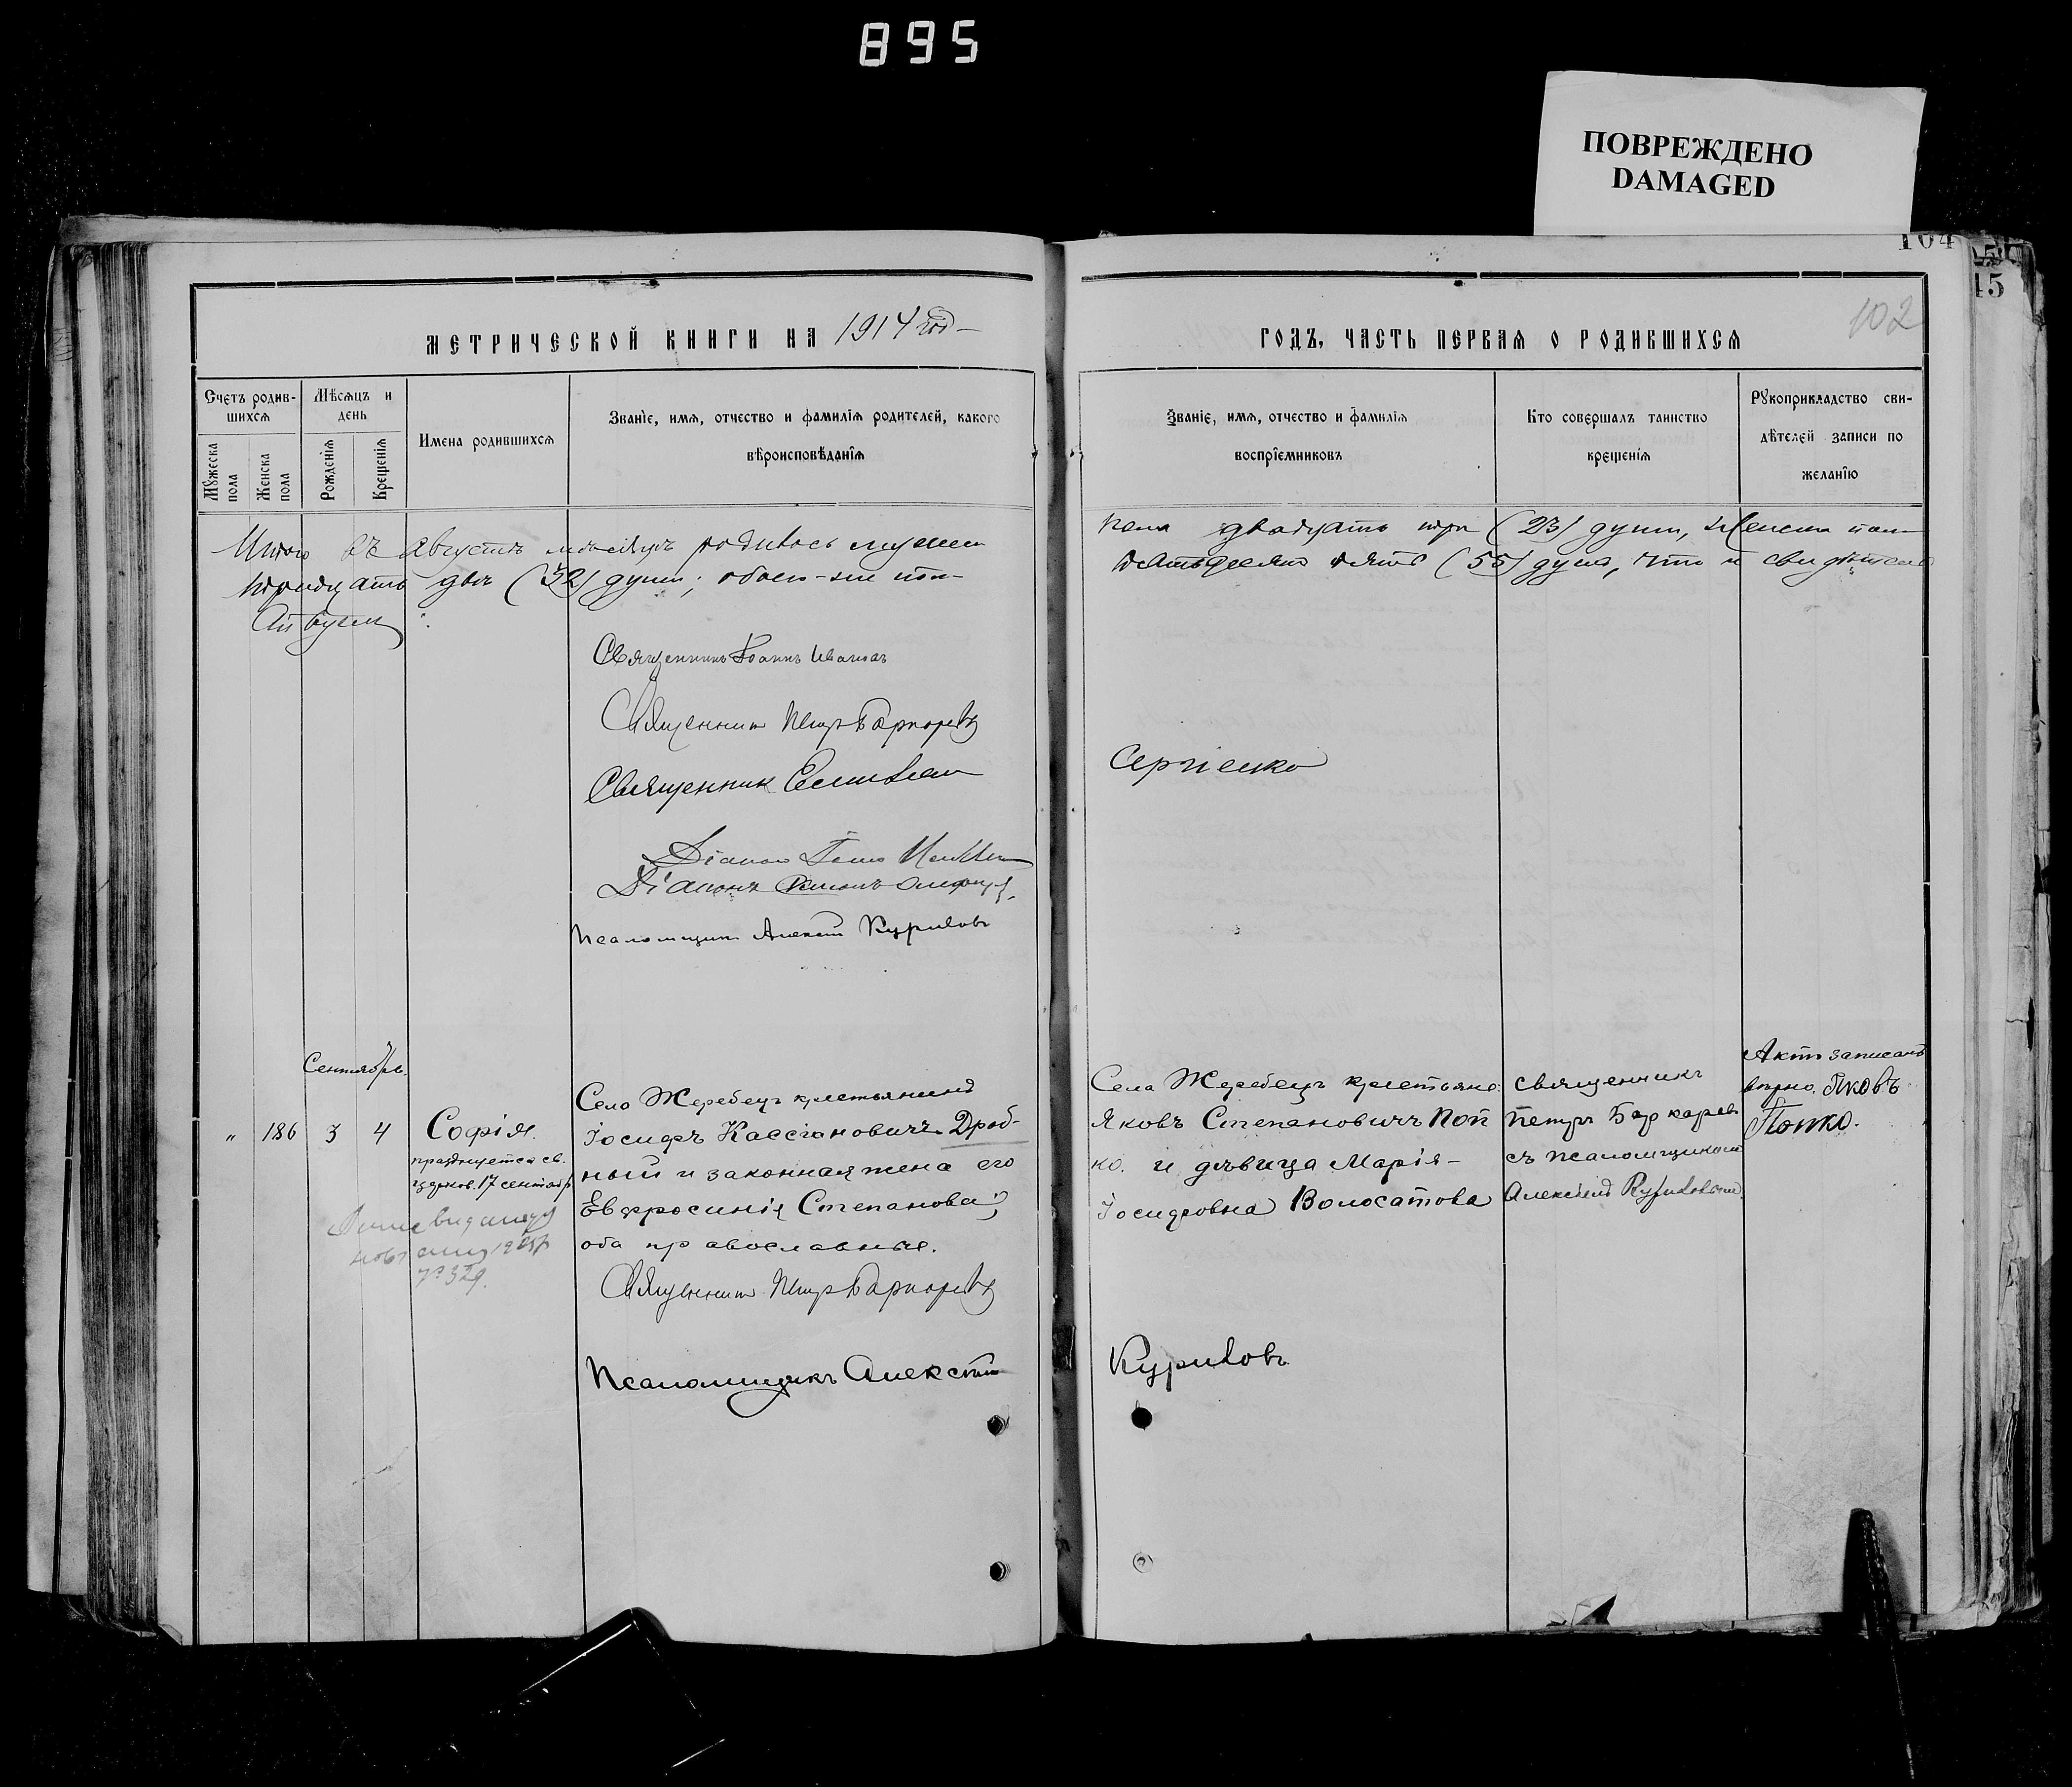 895
ПОВРЕЖДЕНО
DAMAGED
104
15
102
МЕТРИЧЕСКОЙ КНИГИ НА 1914 год
ГОДЪ, ЧАСТЬ ПЕРВАЯ О РОДИВШИХСЯ
Счетъ родив-
шихся
Мужеска пола
Женска пола
Мѣсяцъ и
день
Рожденія
Крещенія
Имена родившихся
Званіе, имя, отчество и фамилія родителей, какого
вѣроисповѣданія
Званіе, имя, отчество и фамилія
воспріемниковъ
Кто совершалъ таинство
крещенія
Рукоприкладство сви-
дѣтелей записи по
желанію
Итого въ Августѣ мѣсяцѣ родилось мужеск
тридцать два (32) души; обоего-же пол-
пола двадцать три (23) души, женска пол
пятьдесятъ пять (55) душъ, что и свидѣтель
Священникъ Іоаннъ Ивановъ
Священникъ Петръ Баркаревъ
Священникъ
Сергіенко
Діаконъ
Діаконъ
Псаломщикъ Алексѣй Куриловъ
Сентябрь.
" 186 3 4
Софія.
празднуется св.
церков. 17 сентябр
№ 329.
Село Жеребецъ крестьянинъ
Іосифъ Кассіановичъ Дроб-
ный и законная жена его
Евфросинія Степанова;
оба православные.
Священникъ Петръ Баркаревъ
Псаломщикъ Алексѣй
Куриловъ
Села Жеребецъ крестьяне:
Яковъ Степановичъ Поп
ко. и дѣвица Марія-
Іосифовна Волосатова
Священникъ
Петръ Баркаревъ
съ псаломщикомъ
Алексѣемъ Куриловымъ
Актъ записанъ
вѣрно. Яковъ
Попко.